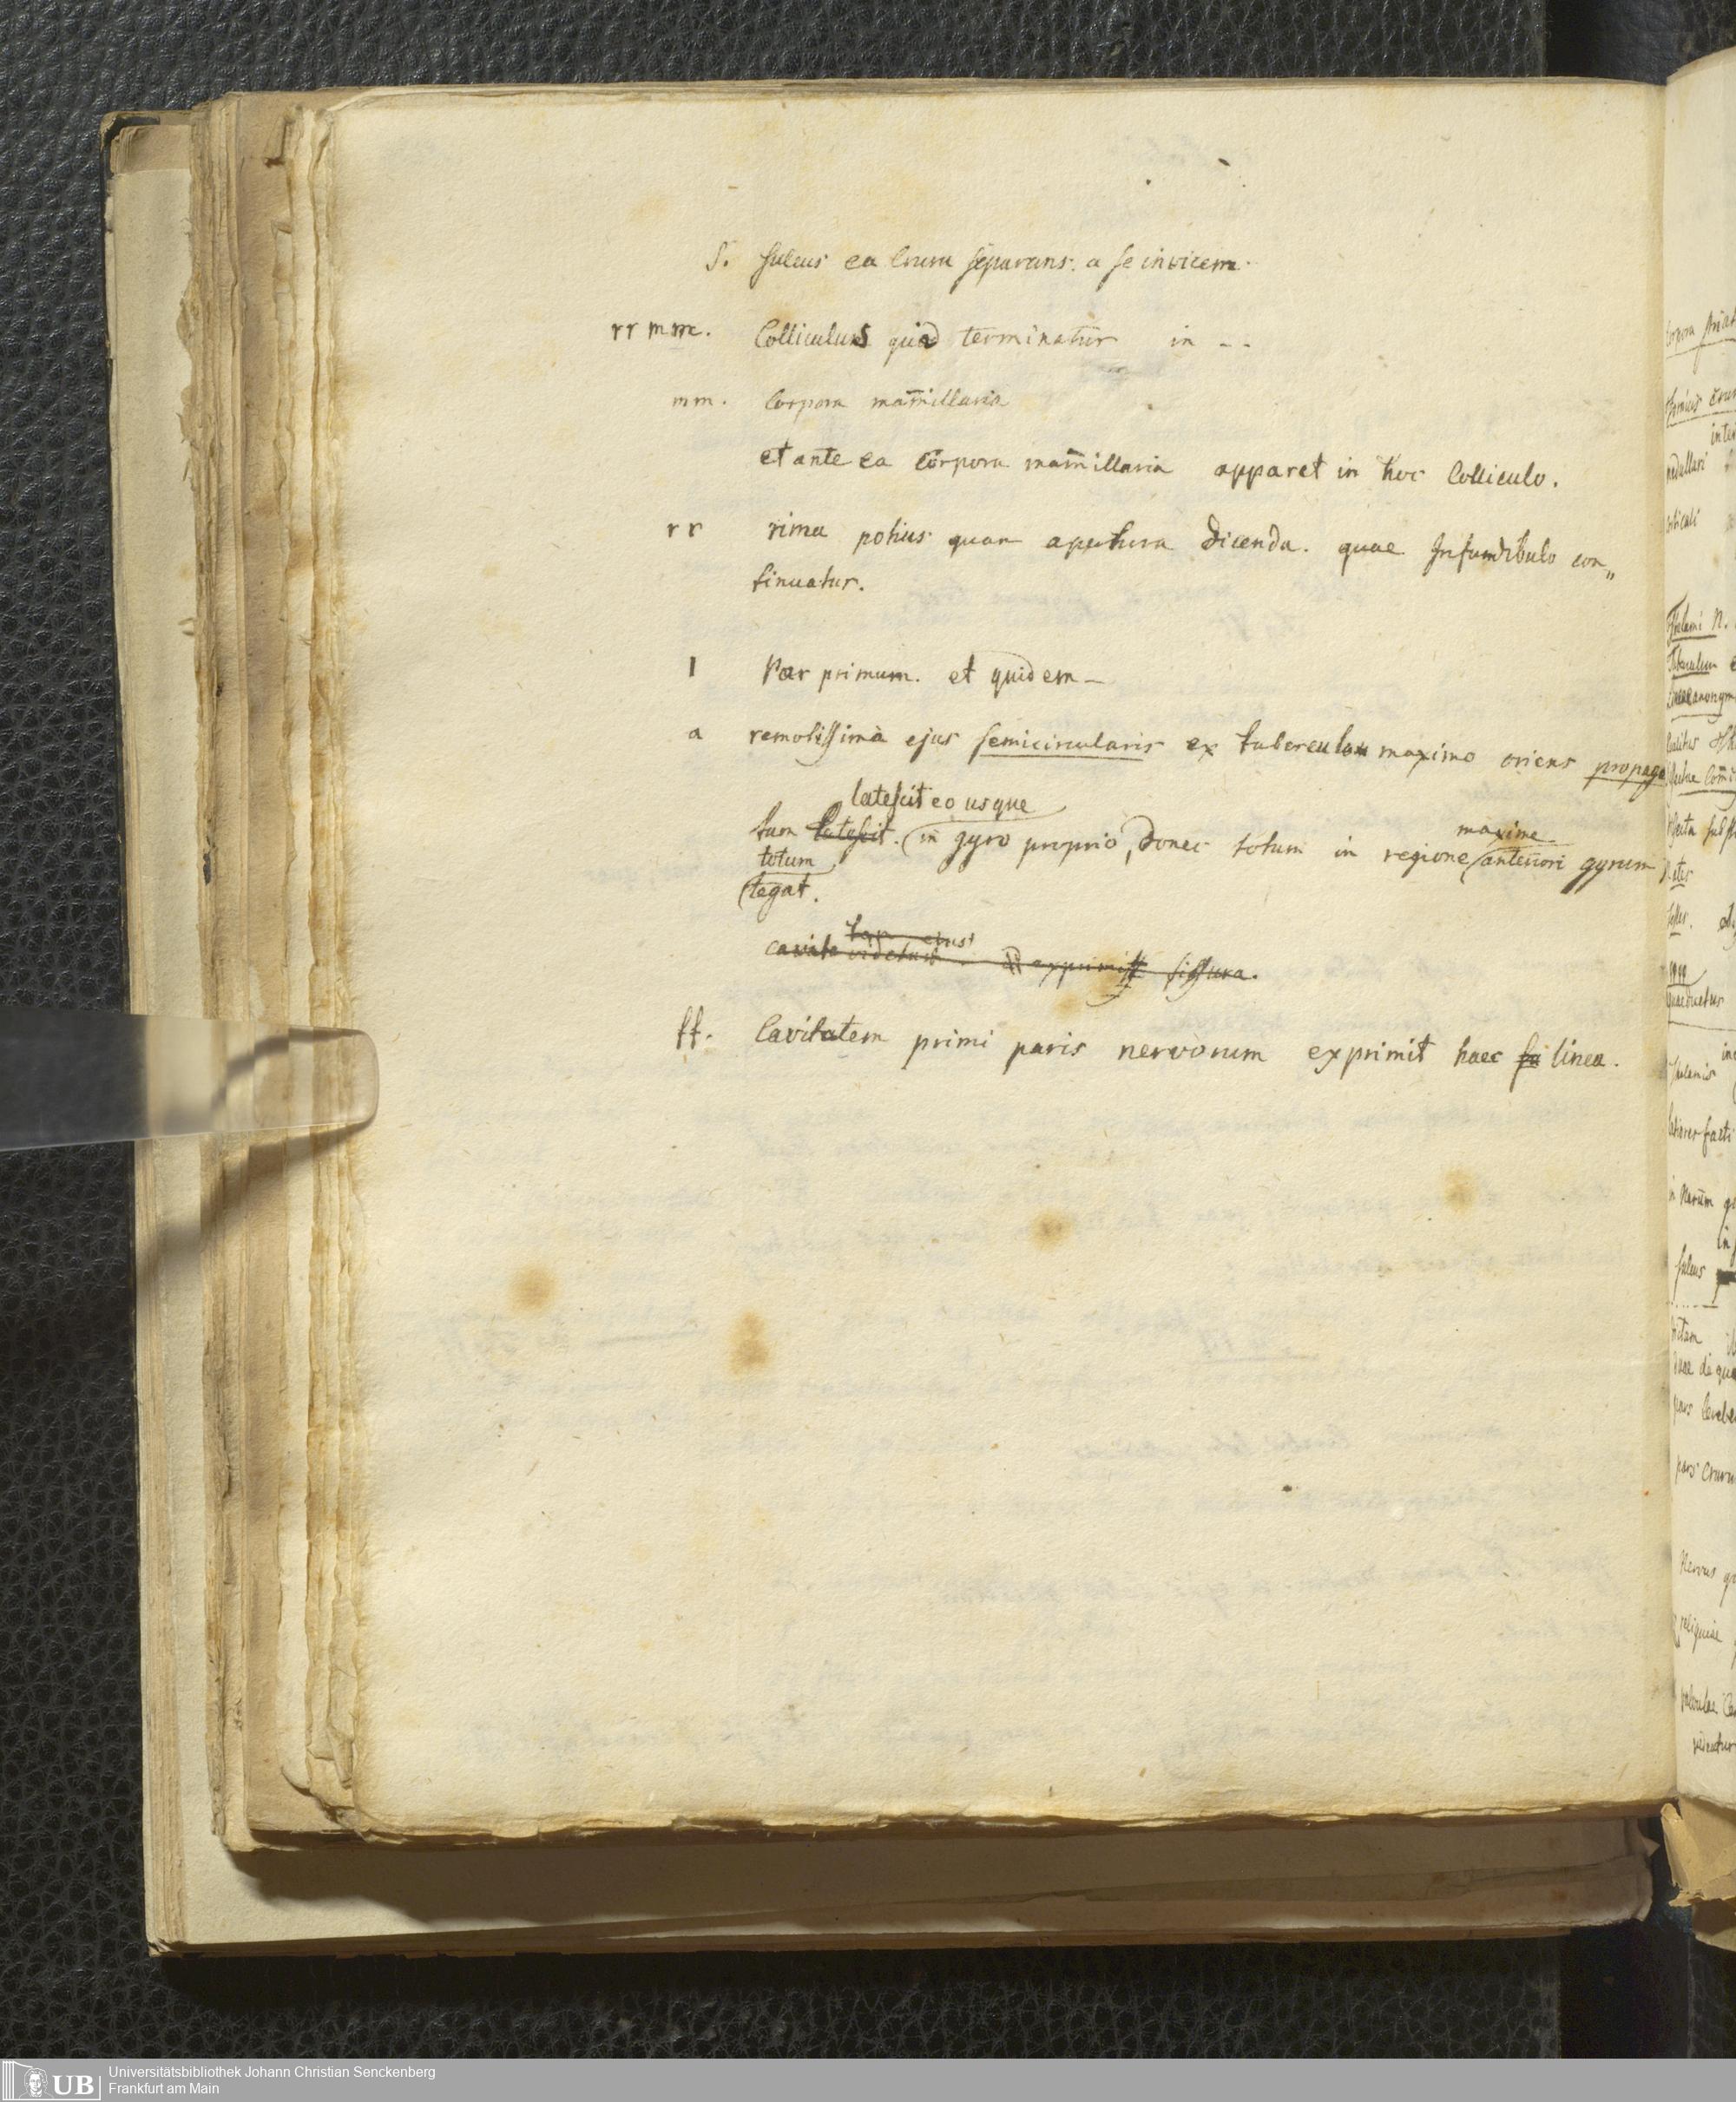 S. Sulcus ea Crura separans. a se invicem.
rr mm. Colliculus quia terminatur in - -
mm. Corpora mam̄illaria
et ante ea Corpora mam̄illaria apparet in hoc Colliculo.
rr rima potius quam apertura dicenda. quae Infundibulo con„
tinuatur.
1 Par primum. et quidem -
a remotissima ejus semicircularis ex tuberculo maximo oriens propago
latescit eo usque
tum latescit. (in gyro proprio, donec totum in regione maxime (anteriori gyrum
totum
(tegat.
videtur exprimit fissura.
ff. Cavitatem primi paris nervorum exprimit haec fa linea.
Corpora
Thalami N.
Tuberculum
Sulcus
pars
Nervus
reliquiae
UB
Universitätsbibliothek Johann Christian Senckenberg
Frankfurt am Main